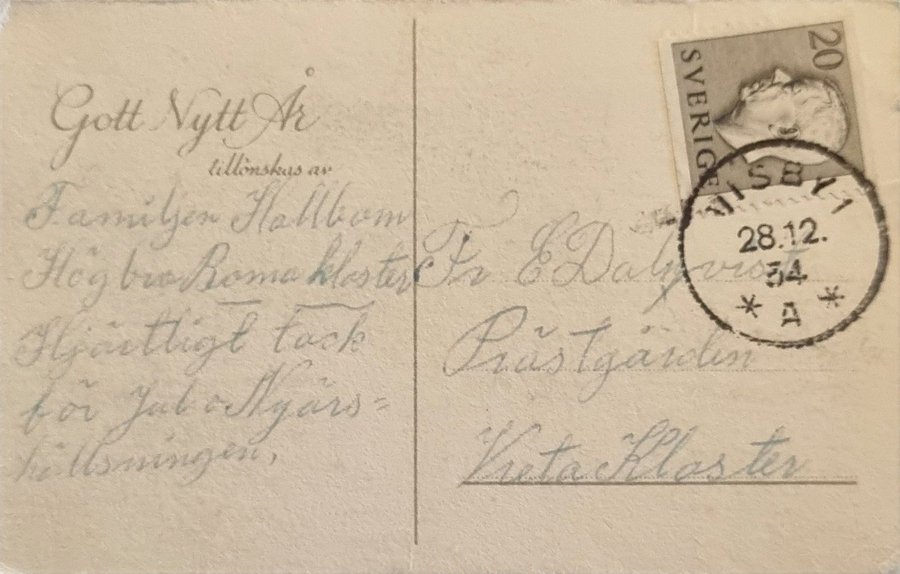 Gott Nytt År
tillönskas av
Familjen Hallbom
Högbro Romakloster
Hjärtligt tack
för Jul o Nyårs=
hällsningen.
20
SVERIGE
VISBY 1
28.12.
54
* A *
Fr E Dalqvist
Prästgården
Vreta Kloster